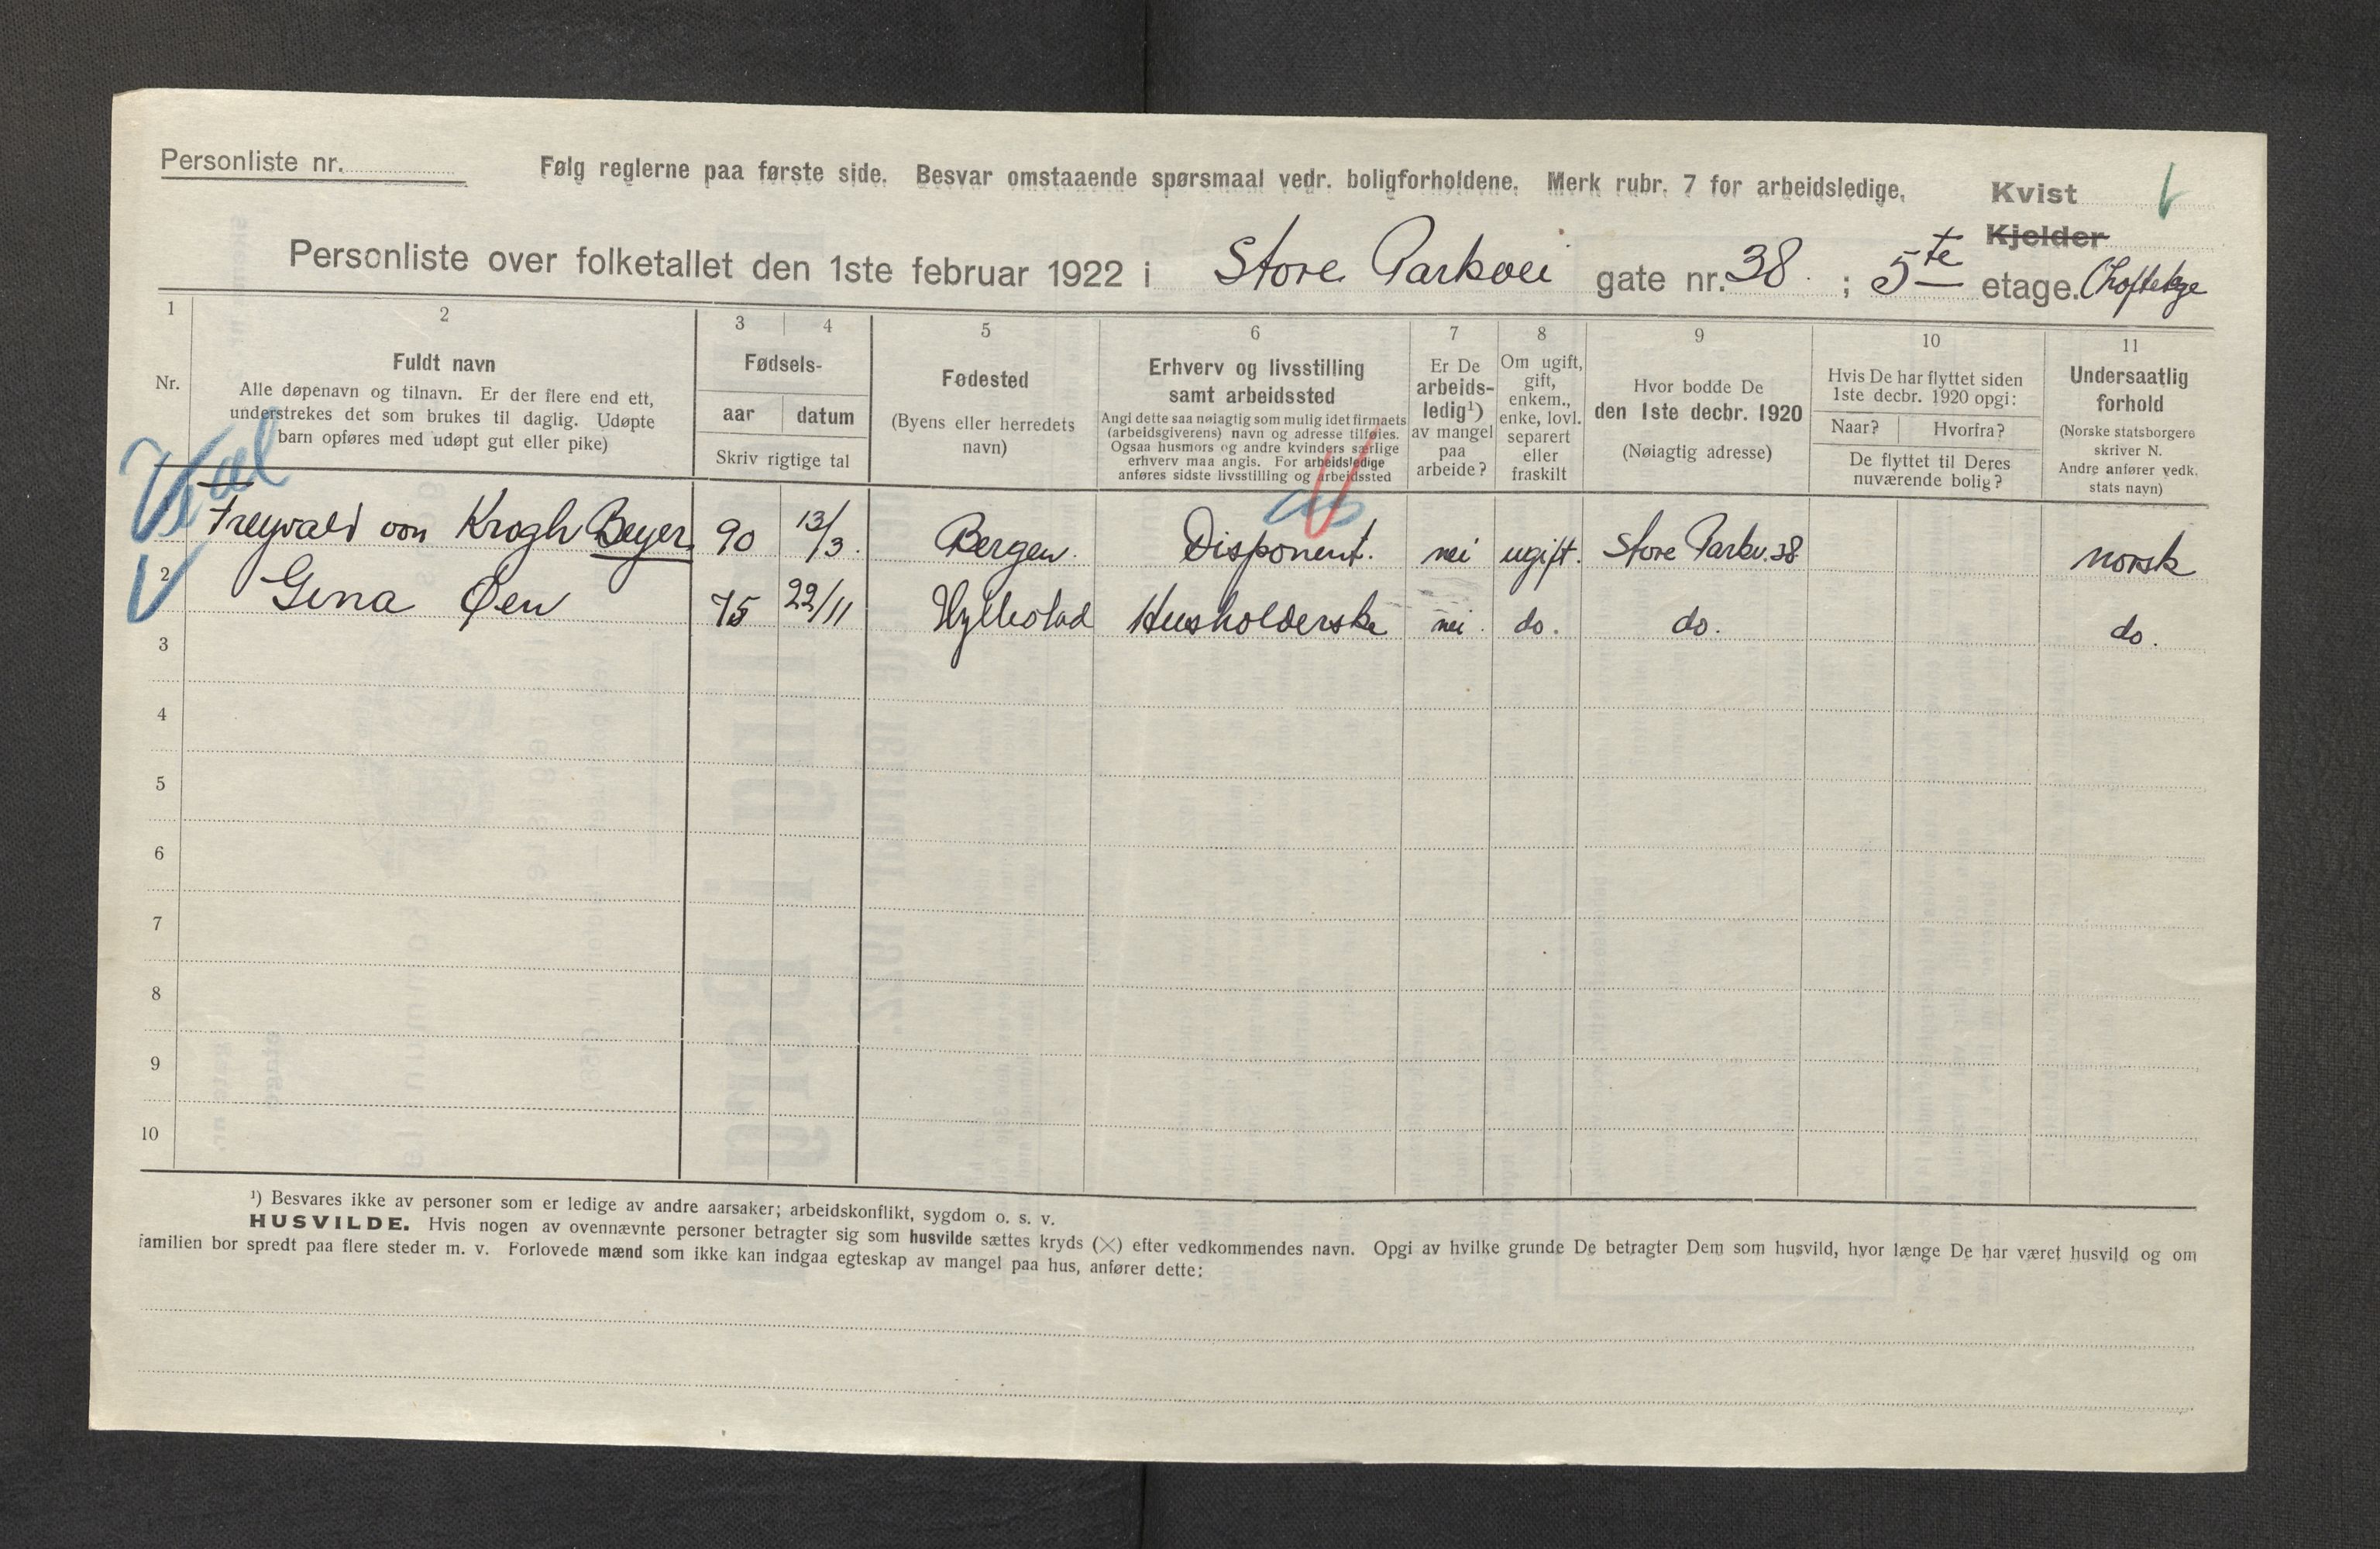 Personliste nr.
Følg reglerne paa første side. Besvar omstaaende spørsmaal vedr. boligforholdene. Merk rubr. 7 for arbeidsledige.
Kvist
Kjelder
Personliste over folketallet den 1ste februar 1922 i Store Parkvei gate nr. 38. ; 5te etage.
1 2 3 4 5 6 7 8 9 10 11
Nr.
Fuldt navn
Alle døpenavn og tilnavn. Er der flere end ett,
understrekes det som brukes til daglig. Udøpte
barn opføres med udøpt gut eller pike)
Fødsels-
aar datum
Skriv rigtige tal
Fødested
(Byens eller herredets
navn)
Erhverv og livsstilling
samt arbeidssted
Angi dette saa nøiagtig som mulig idet firmaets
(arbeidsgiverens) navn og adresse tilføies.
Ogsaa husmors og andre kvinders særlige
erhverv maa angis. For arbeidsledige
anføres sidste livsstilling og arbeidssted
Er De
arbeids-
ledig¹)
av mangel
paa
arbeide?
Om ugift,
gift,
enkem.,
enke, lovl.
separert
eller
fraskilt
Hvor bodde De
den 1ste decbr. 1920
(Nøiagtig adresse)
Hvis De har flyttet siden
1ste decbr. 1920 opgi:
Naar? Hvorfra?
De flyttet til Deres
nuværende bolig?
Undersaatlig
forhold
(Norske statsborgere
skriver N.
Andre anfører vedk.
stats navn)
Freyvald von Krogh Beyer. 90 13/3. Bergen. Disponent. nei ugift. Store Parkv. 38 norsk
2 Gina Øen 75 22/11 Hyllestad Husholderske nei. do. do. do.
3
4
5
6
7
8
9
10
¹) Besvares ikke av personer som er ledige av andre aarsaker; arbeidskonflikt, sygdom o. s. v.
HUSVILDE. Hvis nogen av ovennævnte personer betragter sig som husvilde sættes kryds (×) efter vedkommendes navn. Opgi av hvilke grunde De betragter Dem som husvild, hvor længe De har været husvild og om
familien bor spredt paa flere steder m. v. Forlovede mænd som ikke kan indgaa egteskap av mangel paa hus, anfører dette: